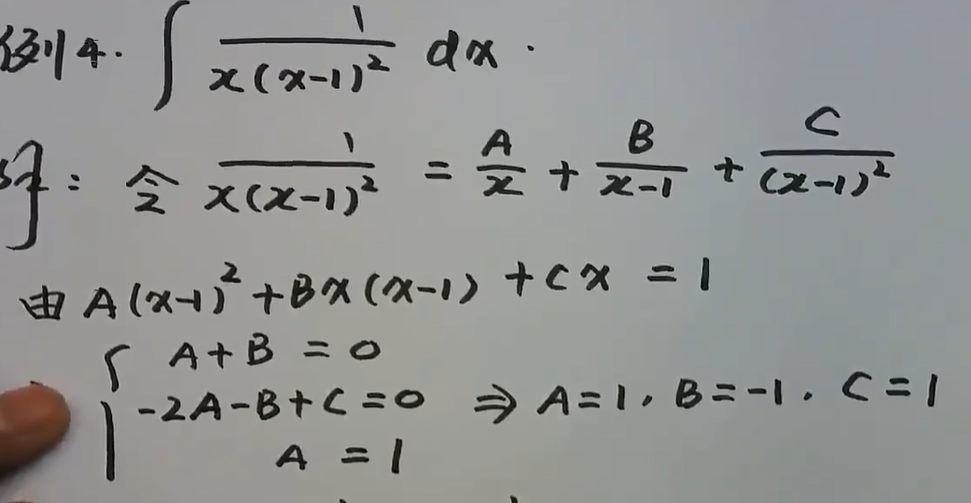 例4. ∫ 1/(x(x-1)²) dx.
解: 令 1/(x(x-1)²) = A/x + B/(x-1) + C/(x-1)²
由 A(x-1)² + Bx(x-1) + Cx = 1
{ A+B = 0
-2A-B+C=0 ⇒ A=1, B=-1, C=1
A = 1